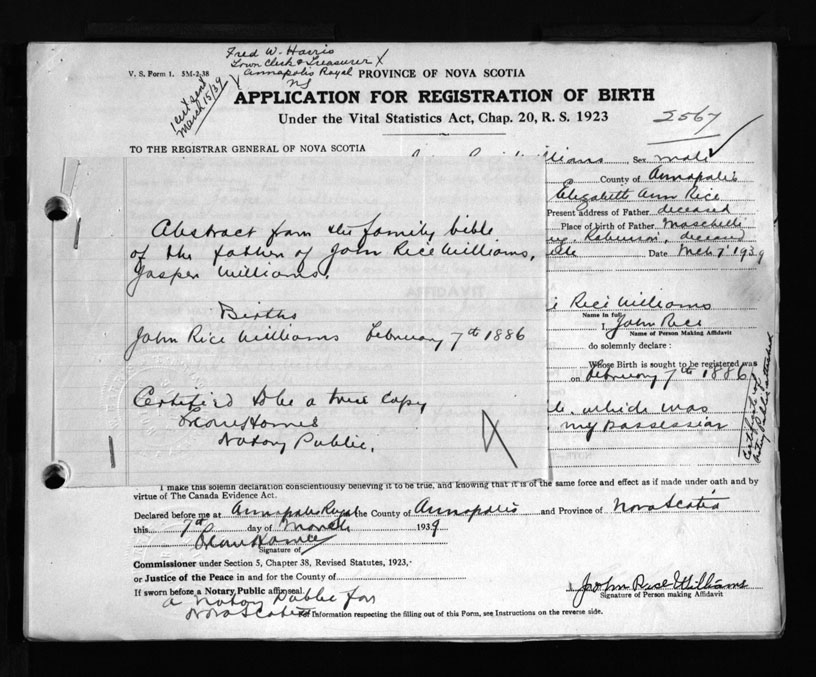 Fred W. Harris
Town Clerk & Treasurer X
Annapolis Royal
NS
V. S. Form 1. 5M-2-38
PROVINCE OF NOVA SCOTIA
cert sent
March 15/39
APPLICATION FOR REGISTRATION OF BIRTH
Under the Vital Statistics Act, Chap. 20, R. S. 1923
2567
TO THE REGISTRAR GENERAL OF NOVA SCOTIA
lliams Sex male
County of Annapolis
Elizabeth Ann Rice
Present address of Father deceased
Place of birth of Father
deceased
Date Mch 7 1939
Abstract from the family bible
of the father of John Rice Williams,
Jasper Williams.
Births
John Rice Williams February 7th 1886
Certified to be a true copy
Notary Public.
Rice Williams
Name in full
I, John Rice
Name of Person Making Affidavit
do solemnly declare :
Whose Birth is sought to be registered was
on February 7th 1886
which was
my possession
I make this solemn declaration conscientiously believing it to be true, and knowing that it is of the same force and effect as if made under oath and by
virtue of The Canada Evidence Act.
Declared before me at Annapolis Royal the County of Annapolis and Province of Nova Scotia
this 7th day of March 1939
Signature of
Commissioner under Section 5, Chapter 38, Revised Statutes, 1923,
or Justice of the Peace in and for the County of
If sworn before a Notary Public affix seal.
a Notary Public for
Nova Scotia
John Rice Williams
Signature of Person making Affidavit
For Information respecting the filling out of this Form, see Instructions on the reverse side.